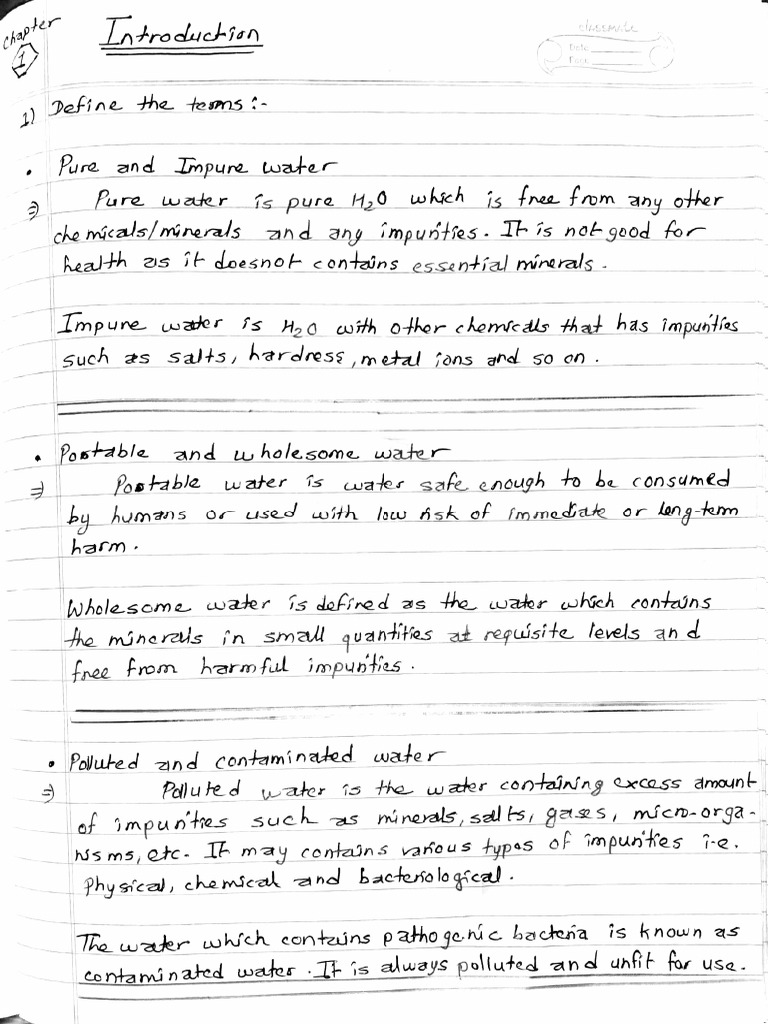 Chapter
1
Introduction
classmate
Date
Page
1) Define the terms:-
• Pure and Impure water
⇒ Pure water is pure H₂O which is free from any other
chemicals/minerals and any impurities. It is not good for
health as it doesnot contains essential minerals.
Impure water is H₂O with other chemicals that has impurities
such as salts, hardness, metal ions and so on.
• Postable and wholesome water
⇒ Postable water is water safe enough to be consumed
by humans or used with low risk of immediate or long-term
harm.
Wholesome water is defined as the water which contains
the minerals in small quantities at requisite levels and
free from harmful impurities.
• Polluted and contaminated water
⇒ Polluted water is the water containing excess amount
of impurities such as minerals, salts, gases, micro-orga-
nisms, etc. It may contains various types of impurities i.e.
Physical, chemical and bacteriological.
The water which contains pathogenic bacteria is known as
contaminated water. It is always polluted and unfit for use.